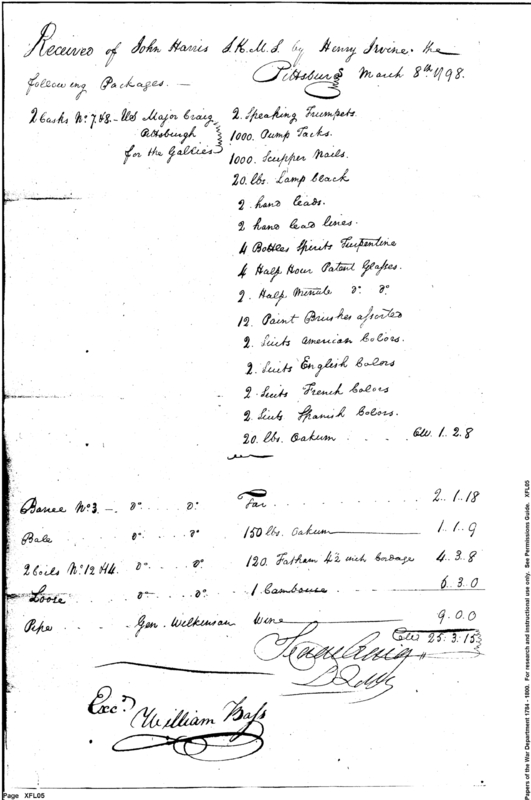 Received of John Harris S.K.M.S. by Henry Irvine. the
following Packages. — Pittsburg March 8th 1798.
2 Casks No. 7 & 8 — Major Craig 2. Speaking Trumpets
Pittsburgh 1000. Pump Tacks.
for the Gallies 1000. Scupper Nails.
20. lbs. Lamp black
2. hand leads.
2 hand lead lines.
4 Bottles Spirits Turpentine
4 Half Hour Patent Glasses.
2. Half Minute do. do.
12. Paint Brushes assorted
2. Suits American Colors.
2. Suits English Colors
2. Suits French Colors
2. Suits Spanish Colors.
20. lbs. Oakum . . . . Ctw. 1..2.8
Barrel No. 3 — . do . . do . Tar . . . . . . . . 2..1..18
Bale . . . . do . . do . 150 lbs. Oakum . . 1..1..9
2 Coils No. 12 & 4. do . . do . 120. Fatham 4½ inch Cordage 4.3.8
Loose . . do . . do . 1 Cambouse . . . . 6.3.0
Pipe . . . Gen. Wilkinson Wine . . . . 9.0.0
Ctw 25.3.15
Isaac Craig
D Q M
Excd.
William Bass
Page XFL05
Papers of the War Department 1784 - 1800. For research and instructional use only. See Permissions Guide. XFL05